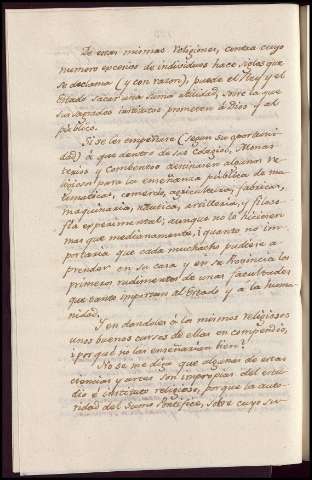 De estas mismas religiones, contra cuyo
numero excesivo de individuos hace siglos que
se declama (y con razon), puede el Rey y el
Estado sacar una suma utilidad, sobre la que
sus sagrados institutos prometen à Dios y al
público.
Si se les empeñare (segun su oportuni-
dad) à que dentro de sus Colegios, Monas-
terios y Conbentos destinasen algunos re-
ligiosos para la enseñanza pública de ma-
tematicas, comercio, agricultura, fabricas,
maquinaria, náutica, artilleria, y filoso-
fia experimental; aunque no lo hiciesen
mas que medianamente, ¡quanto no im-
portaria que cada muchacho pudiera a-
prender en su casa y en su Provincia los
primeros rudimentos de unas facultades
que tanto importan al Estado y à la huma-
nidad.
Y en dandoles à los mismos religiosos
unos buenos cursos de ellas en compendio,
¿porqué no las enseñarian bien?
No se me diga que algunas de estas
ciencias y artes son impropias del estu-
dio è instituto religioso, porque la auto-
ridad del Sumo Pontifice, sobre cuyo su-